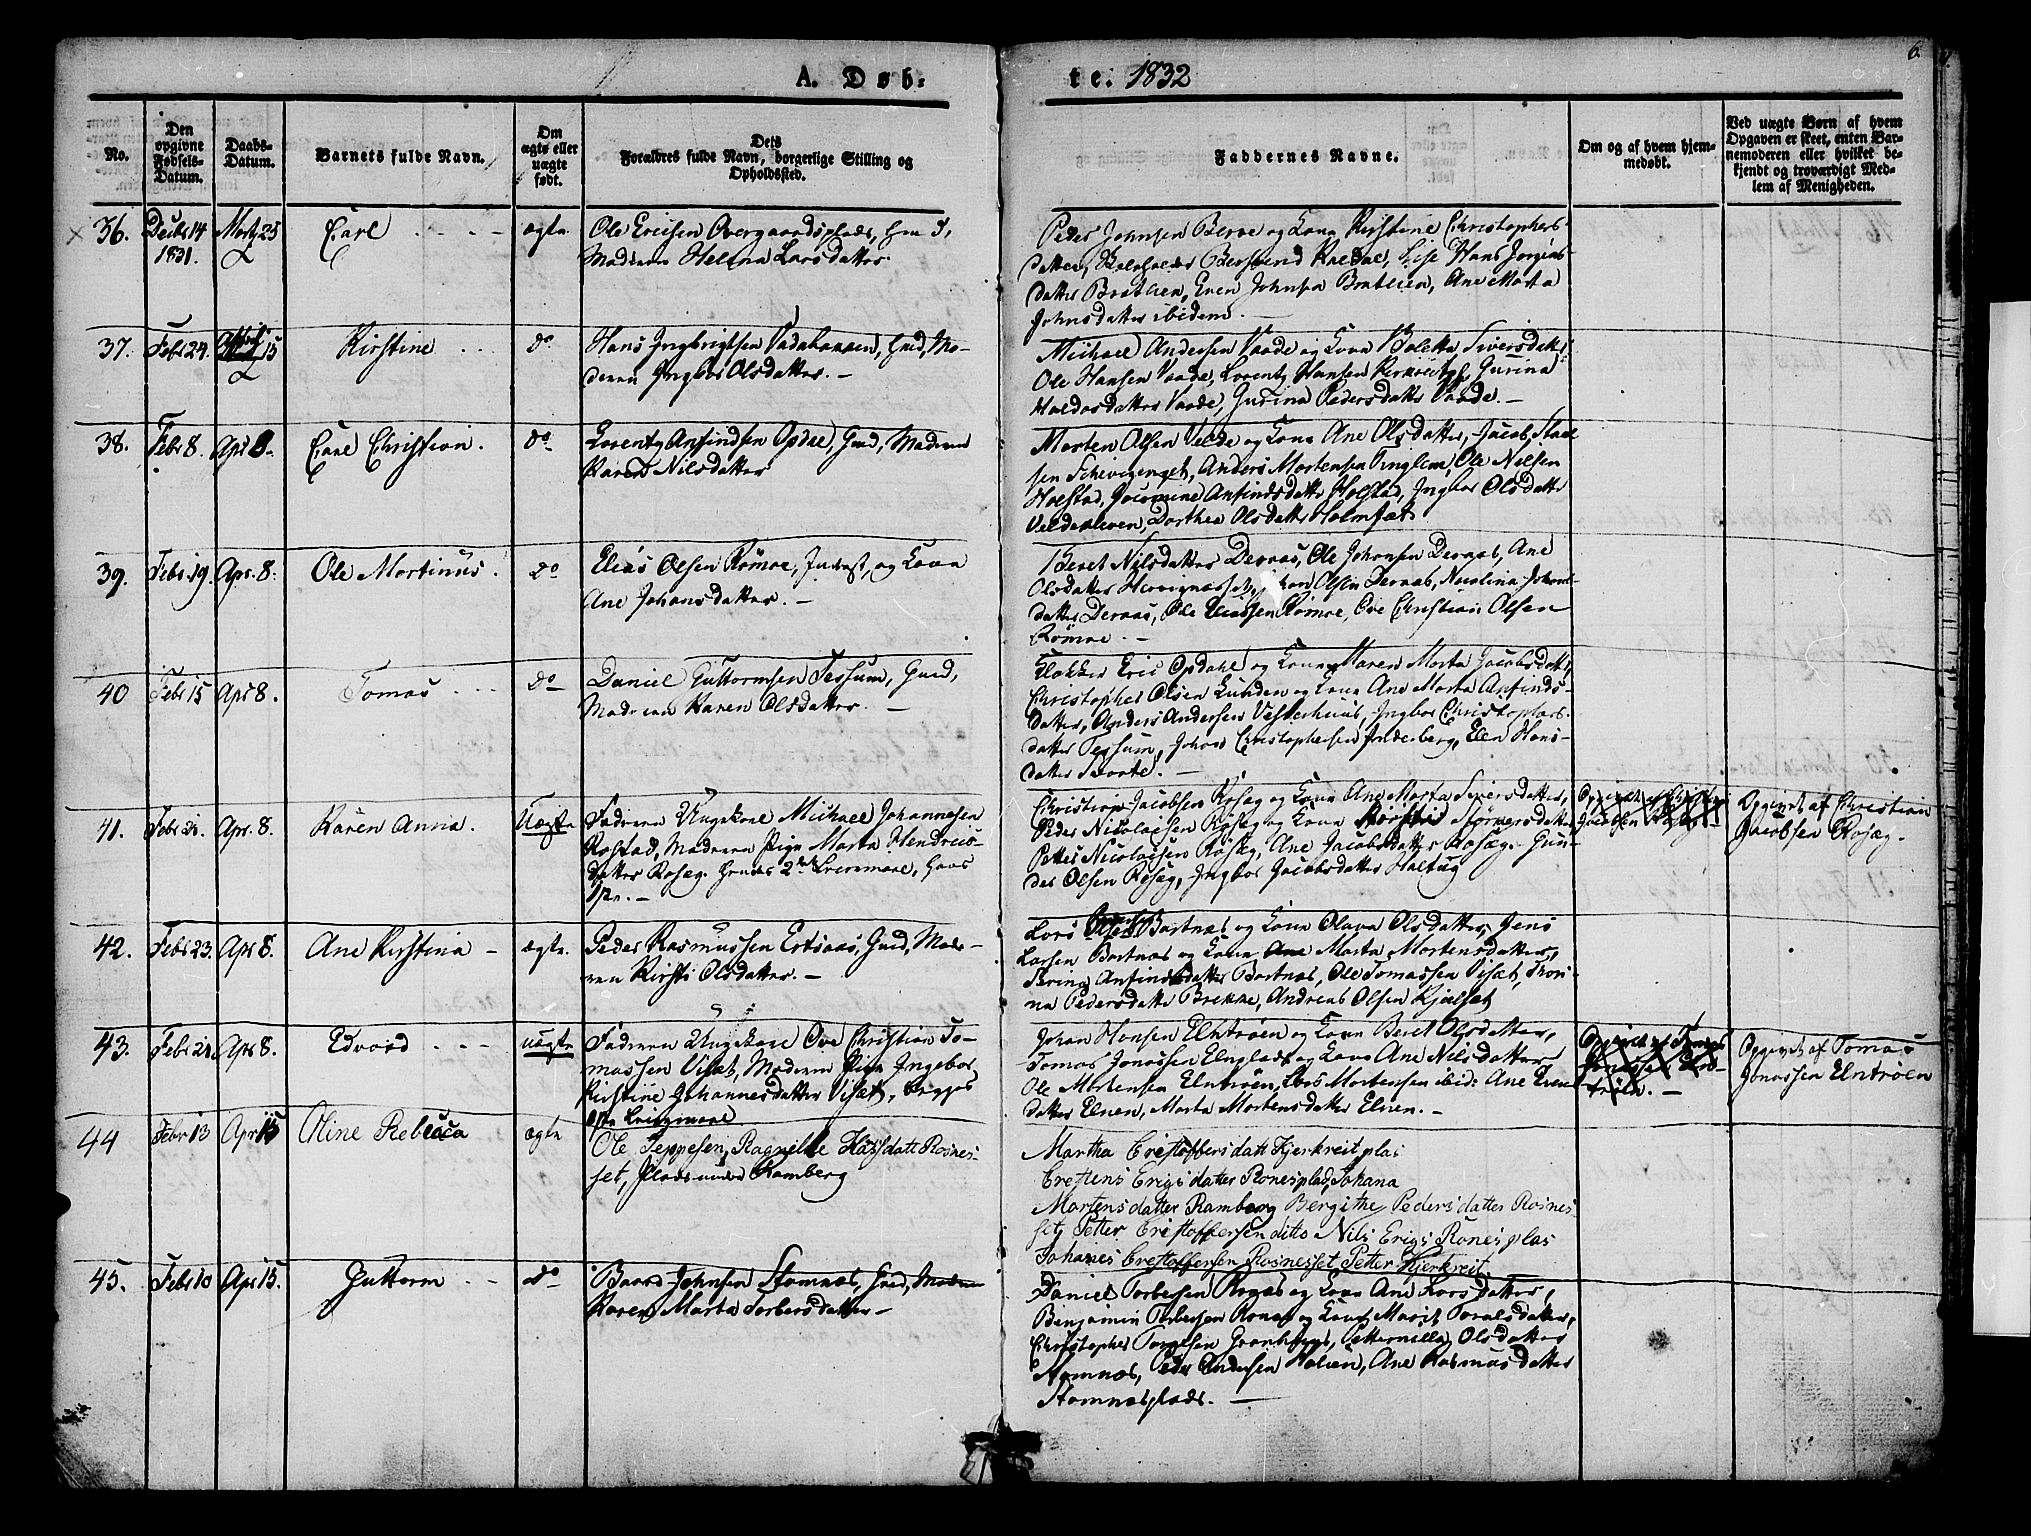 A. Døb-
te. 1832
6.
No.
Den opgivne Fødsels-Datum.
Daabs-Datum.
Barnets fulde Navn.
Om ægte eller uægte født.
Dets Forældres fulde Navn, borgerlige Stilling og Opholdssted.
Faddernes Navne.
Om og af hvem hjemmedøbt.
Ved uægte Børn af hvem Opgaven er skeet, enten Barnemoderen eller hvilket bekjendt og troværdigt Medlem af Menigheden.
36. Decbr 14 1831. Marts 25 Carl ægte
Ole Ericsen Overgaardsplads,
Moderen Helena Larsdatter
Peder Johnsen Berre og Kone Kirstine Christophers-
datter, Bersvend Kaldal, Lise Hans Jørgens-
datter Bratlien, Even Johnsen Bratlien, Ane Marta
Johnsdatter ibidem. -
37. Febr 24. 15 Kirstine do
Hans Ingbrigtsen Gmd, Mo-
deren Ingbor Olsdatter. -
Michael Andersen Vaade og Kone Boletta Siversdatter
Ole Hansen Vaade, Lorentz Hansen Gurina
Haldosdatter Vaade, Gurina Pedersdatter Vaade. -
38. Febr 8. Apr 8. Carl Christian. do
Lorentz Anfindsen Opdal, Gmd, Moderen
Karen Nilsdatter
Morten Olsen Velde og Kone Ane Olsdatter, Jacob
Anders Mortensen Tinglem, Ole Nilsen
Holstad, Jacomine Anfindsdatter Holstad, Ingbor Olsdatter
Dorthea Olsdatter
39. Febr. 19. Apr. 8. Ole Mortinus. do
Elias Olsen Rømoe, Inderst, og Kone
Ane Johansdatter. -
Beret Nilsdatter Deraas, Ole Johansen Deraas, Ane
Olsdatter Johan Olsen Deraas, Nicolina Johans-
datter Deraas, Ole Eliassen Rømoe, Ove Christian Olsen
Rømoe. -
40 Febr 15 Apr 8. Tomas do
Daniel Guttormsen Tessum, Gmd,
Moderen Karen Olsdatter. -
Klokker Eric Opdahl og Kone Maren Marta Jacobsdatter,
Christopher Olsen Lunden og Kone Ane Marta Anfinds-
datter, Anders Andersen Vesterhuus, Ingbor Christophers-
datter Tessum, Johan Christophersen Inderberg, Elen Hans-
datter -
41. Febr 21. Apr. 8. Karen Anna. Uægte
Faderen Ungekarl Michael Johannesen
Rostad, Moderen Pige Marta Hendrics-
datter Rosæg. Hendes 2det Leiermaal, hans
1ste. -
Christian Jacobsen Rosæg og Kone Ane Marta Siversdatter,
Peder Nicolaisen Rosæg og Kone
Petter Nicolaisen Rosæg, Ane Jacobsdatter Rosæg. Gun-
der Olsen Rosæg, Ingbor Jacobsdatter Haltug
Opgivet af Christian
Jacobsen Rosæg.
42. Febr 23. Apr 8. Ane Kirstina - ægte.
Peder Rasmussen Ertsaas, Gmd, Mode-
ren Kirsti Olsdatter. -
Lars Bartnes og Kone Olava Olsdatter, Jens
Larsen Bartnes og Kone Marta Mortensdatter,
Anfindsdatter Bartnes, Ole Tomassen Viset,
na Pedersdatter Brekke, Andreas Olsen Kjelset
43. Febr 21 Apr 8. Edvard uægte
Faderen Ungekarl Ove Christian To-
massen Viset, Moderen Pige Ingebor
Kirstine Johannesdatter Viset, begges
1ste Leiermaal
Johan Hansen Elntrøen og Kone Beret Olsdatter,
Tomas Jonassen og Kone Ane Nilsdatter
Ole Mortensen Elntrøen, Lars Mortensen ibid: Ane
datter Elnen, Marta Mortensdatter Elnen. -
Opgivet af Tomas
Jonassen Elntrøen
44 Febr 13 Apr 15 Oline Rebecca ægte
Ole Jeppesen, Ragnelle datt Rosnes-
set, Plads under Ramberg
Martha Crestoffersdatt Kjerkreitplas
Crestens Erigsdatter Ronesplad, Johana
Martensdatter Ramberg Bergithe Pedersdatter Rosnes-
set, Petter Crestoffersen ditto Nils Erigs Ronesplas
Johanes Crestoffersen Rosnesset Petter Kjerkreit.
45. Febr 10 Apr 15. Guttorm do
Baard Johnsen Stamnes, Gmd, Moderen
Karen Marta Torbersdatter -
Daniel Torbersen og Kone Ane Larsdatter,
Benjamin Torbersen og Kone Marit
Christopher Petternilla Olsdatter
Stamnes, Peder Andersen Ane Rasmusdatter
Stamnesplads. -